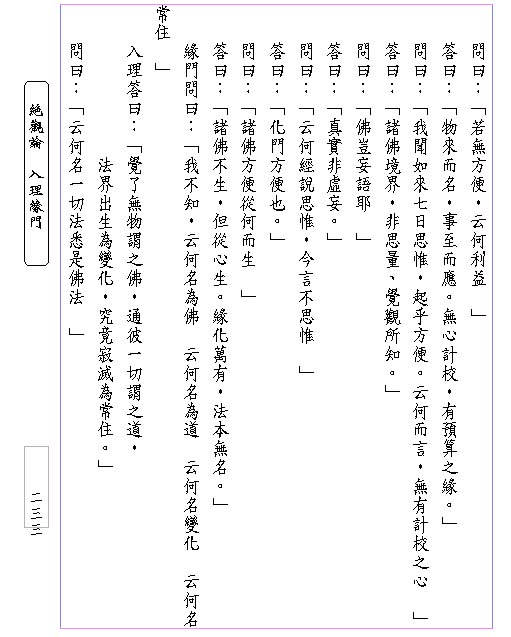 問曰：「若無方便，云何利益　」
答曰：「物來而名，事至而應。無心計校，有預算之緣。」
問曰：「我聞如來七日思惟，起乎方便。云何而言，無有計校之心　」
答曰：「諸佛境界，非思量、覺觀所知。」
問曰：「佛豈妄語耶　」
答曰：「真實非虛妄。」
問曰：「云何經說思惟，今言不思惟　」
答曰：「化門方便也。」
問曰：「諸佛方便從何而生　」
答曰：「諸佛不生，但從心生。緣化萬有，法本無名。」
緣門問曰：「我不知，云何名為佛　云何名為道　云何名變化　云何名
常住　」
入理答曰：「覺了無物謂之佛，通彼一切謂之道，
法界出生為變化，究竟寂滅為常住。」
問曰：「云何名一切法悉是佛法　」
絕觀論　入理緣門
二三三